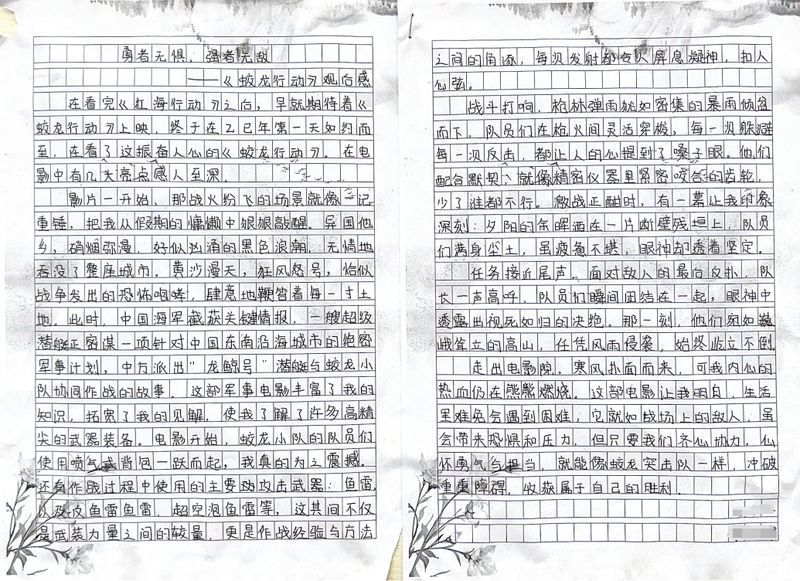 勇者无惧，强者无敌
——《蛟龙行动》观后感
在看完《红海行动》之后，早就期待着《
蛟龙行动》上映，终于在乙巳年第一天如约而
至，在看了这振奋人心的《蛟龙行动》。在电
影中有几大亮点感人至深。
影片一开始，那战火纷飞的场景就像一记
重锤，把我从假期的慵懒中狠狠敲醒。异国他
乡，硝烟弥漫，好似汹涌的黑色浪潮，无情地
吞没了整座城市。黄沙漫天，狂风怒号，恰似
战争发出的恐怖咆哮，肆意地鞭笞着每一寸土
地。此时，中国海军截获关键情报，一艘超级
潜艇正密谋一项针对中国东南沿海城市的绝密
军事计划，中方派出"龙鲸号"潜艇与蛟龙小
队协同作战的故事。这部军事电影丰富了我的
知识，拓宽了我的见解，使我了解了许多高精
尖的武器装备。电影开始，蛟龙小队的队员们
使用喷气式背包一跃而起，我真的为之震撼。
还有作战过程中使用的主要动攻击武器：鱼雷
以及攻鱼雷鱼雷，超空泡鱼雷等，这其间不仅
是武装力量之间的较量，更是作战经验与方法
之间的角逐，每次发射都令人屏息凝神，扣人
心弦。
战斗打响，枪林弹雨犹如密集的暴雨倾盆
而下，队员们在枪火间灵活穿梭，每一次躲避
每一次反击，都让人的心提到了嗓子眼。他们
配合默契，就像精密仪器里紧密咬合的齿轮，
少了谁都不行。激战正酣时，有一幕让我印象
深刻：夕阳的余晖洒在一片断壁残垣上，队员
们满身尘土，虽疲惫不堪，眼神却透着坚定。
任务接近尾声，面对敌人的最后反扑，队
长一声高呼，队员们瞬间团结在一起，眼神中
透露出视死如归的决绝。那一刻，他们宛如巍
峨耸立的高山，任凭风雨侵袭，始终屹立不倒。
走出电影院，寒风扑面而来，可我内心的
热血仍在熊熊燃烧。这部电影让我明白，生活
里难免会遇到困难，它就如战场上的敌人，虽
会带来恐惧和压力，但只要我们齐心协力，心
怀勇气与担当，就能像蛟龙突击队一样，冲破
重重障碍，收获属于自己的胜利。